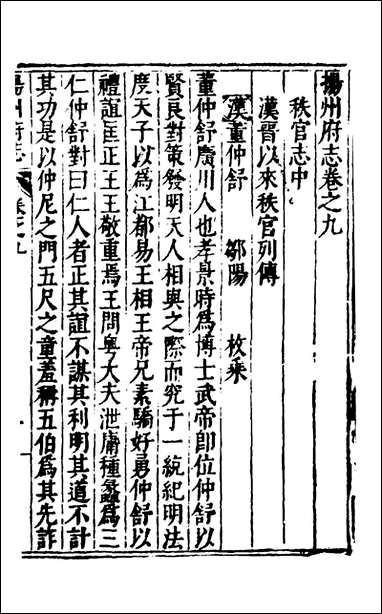 揚州府志卷之九
秩官志中
漢晉以來秩官列傳
漢董仲舒 鄒陽 枚乘
董仲舒廣川人也孝景時爲博士武帝即位仲舒以
賢良對策發明天人相與之際而究于一統紀明法
度天子以爲江都易王相王帝兄素驕好勇仲舒以
禮誼匡正王王敬重焉王問粵大夫泄庸種蠡爲三
仁仲舒對曰仁人者正其誼不謀其利明其道不計
其功是以仲尼之門五尺之童羞稱五伯爲其先詐
揚州府志 卷之九 一